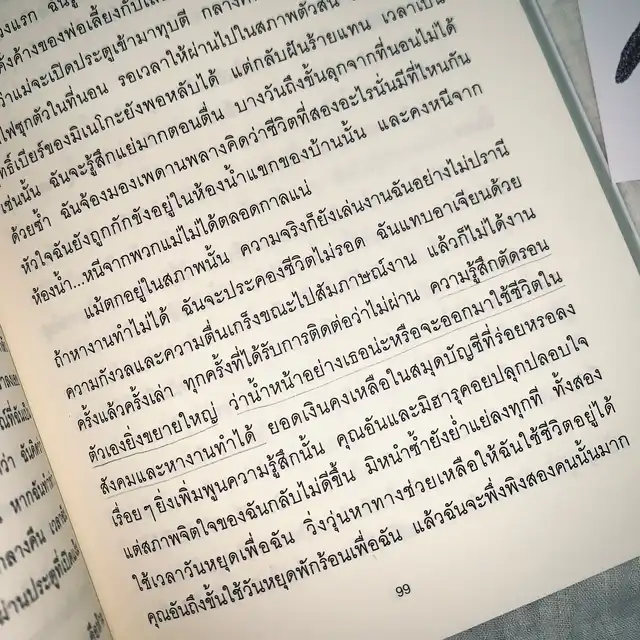 ังแรก ฉันรู้
ดั้งค้างของพ่อเลี้ยงกับแ
ว่าแม่จะเปิดประตูเข้ามาทุบตี กลางค
ไฟซุกตัวในที่นอน รอเวลาให้ผ่านไปในสภาพตัวสั่น
ทธิ์เบียร์ของมิเนโกะยังพอหลับได้ แต่กลับฝันร้ายแทน เวลาเป็น
เช่นนั้น ฉันจะรู้สึกแย่มากตอนตื่น บางวันถึงขั้นลุกจากที่นอนไม่ได้
ด้วยซ้ำ ฉันจ้องมองเพดานพลางคิดว่าชีวิตที่สองอะไรนั่นมีที่ไหนกัน
หัวใจฉันยังถูกกักขังอยู่ในห้องน้ำแขกของบ้านนั้น และคงหนีจาก
ห้องน้ำ...หนีจากพวกแม่ไม่ได้ตลอดกาลแน่
แม้ตกอยู่ในสภาพนั้น ความจริงก็ยังเล่นงานฉันอย่างไม่ปรานี
ถ้าหางานทำไม่ได้ ฉันจะประคองชีวิตไม่รอด ฉันแทบอาเจียนด้วย
ความกังวลและความตื่นเกร็งขณะไปสัมภาษณ์งาน แล้วก็ไม่ได้งาน
ครั้งแล้วครั้งเล่า ทุกครั้งที่ได้รับการติดต่อว่าไม่ผ่าน ความรู้สึกตัดรอน
ตัวเองยิ่งขยายใหญ่ ว่าน้ำหน้าอย่างเธอน่ะหรือจะออกมาใช้ชีวิตใน
สังคมและหางานทำได้ ยอดเงินคงเหลือในสมุดบัญชีที่ร่อยหรอลง
เรื่อยๆ ยิ่งเพิ่มพูนความรู้สึกนั้น คุณอันและมิฮารุคอยปลุกปลอบใจ
แต่สภาพจิตใจของฉันกลับไม่ดีขึ้น มิหนำซ้ำยังย่ำแย่ลงทุกที ทั้งสอง
ใช้เวลาวันหยุดเพื่อฉัน วิ่งวุ่นหาทางช่วยเหลือให้ฉันใช้ชีวิตอยู่ได้
คุณอันถึงขั้นใช้วันหยุดพักร้อนเพื่อฉัน แล้วฉันจะพึ่งพิงสองคนนั้นมาก
99